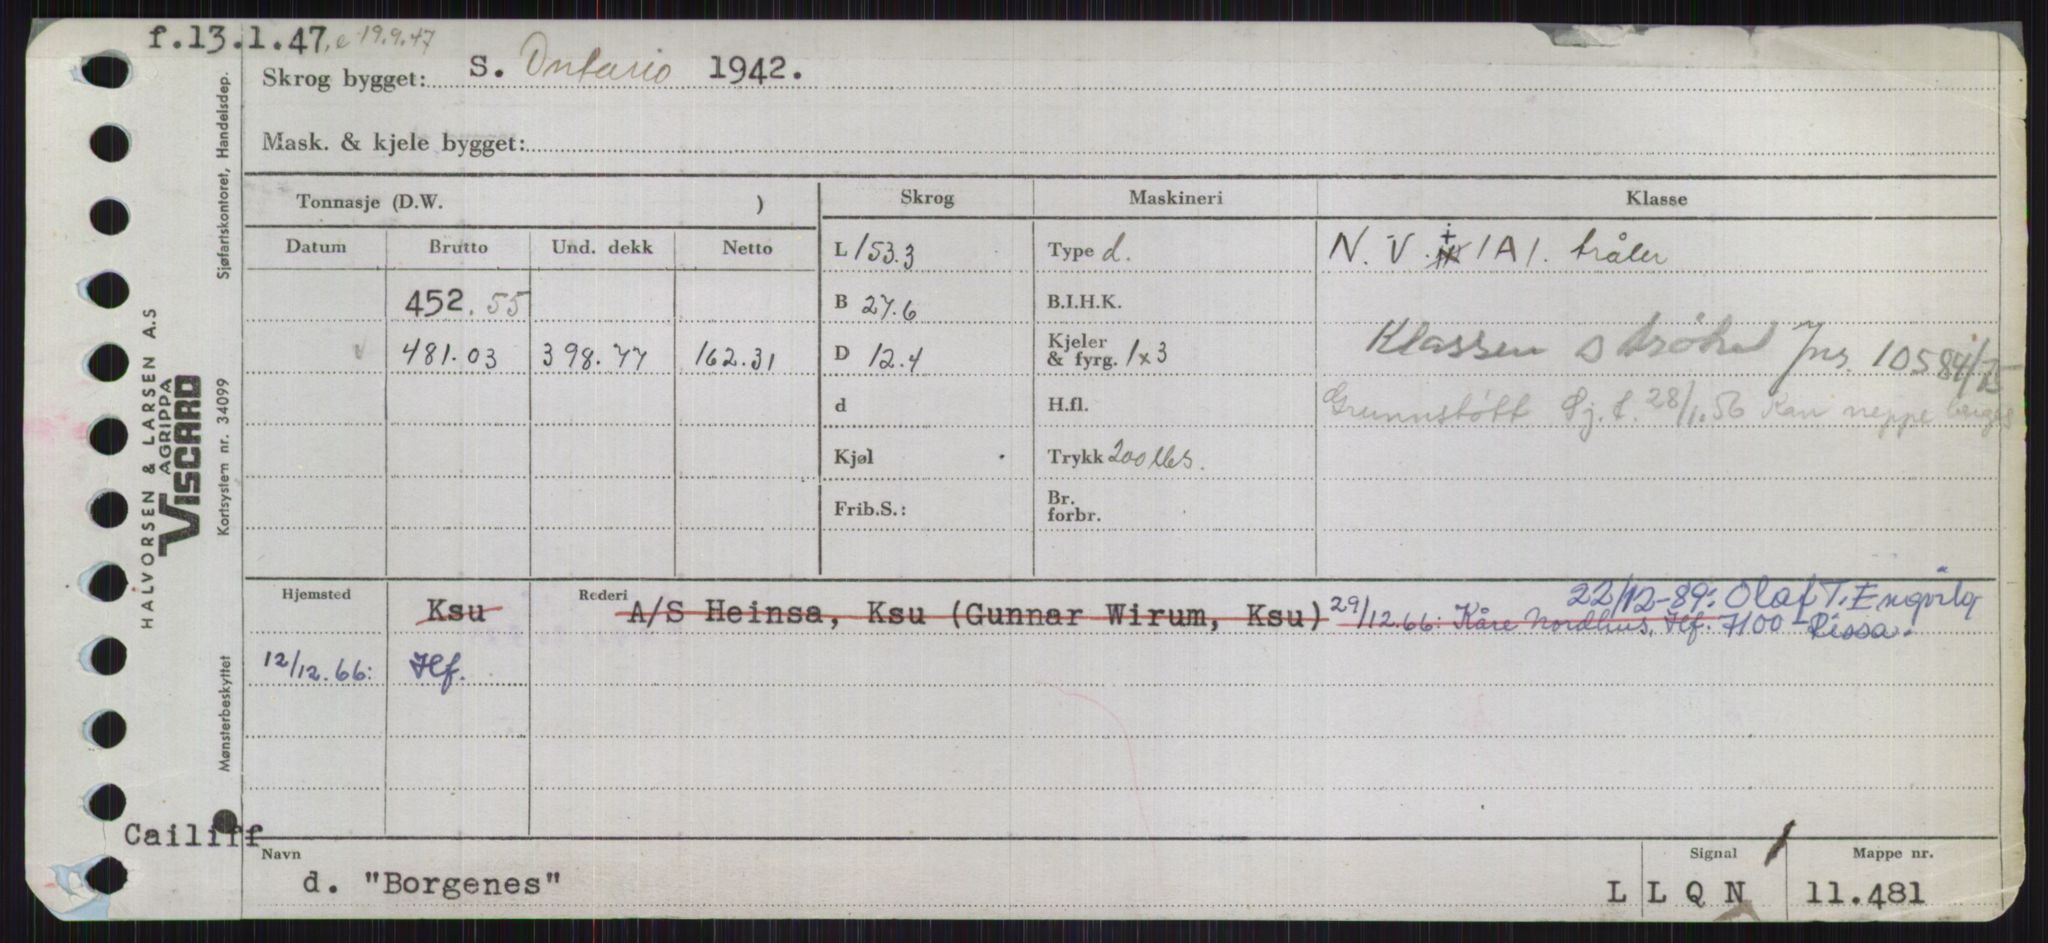 f.13.1.47, e 19.9.47
Skrog bygget: S. Ontario 1942.
Mask. & kjele bygget:
Tonnasje (D.W. )
Skrog Maskineri Klasse
Datum Brutto Und. dekk Netto
L 153.3 Type d. N. V. + 1A1. tråler
452.55
B 27.6 B.I.H.K.
Klassen strøket Jnr. 10584/75
481.03 398.77 162.31
D 12.4 Kjeler & fyrg. 1x3
d H.fl.
Grunnstøtt Sj.f. 28/1.56 Kan neppe berges
Kjøl Trykk 200 lbs.
Frib.S.: Br. forbr.
Hjemsted Rederi
22/12-89: Olaf T. Engvig
Ksu A/S Heinsa, Ksu (Gunnar Wirum, Ksu) 29/12.66: Kåre Nordhus, Hf. 7100 Rissa.
12/12.66: Hf.
Cailiff
Navn Signal Mappe nr.
d. "Borgenes" L L Q N 11.481
Sjøfartskontoret, Handelsdep.
HALVORSEN & LARSEN A.S
AGRIPPA
VISCARD
Kortsystem nr. 34099
Mønsterbeskyttet